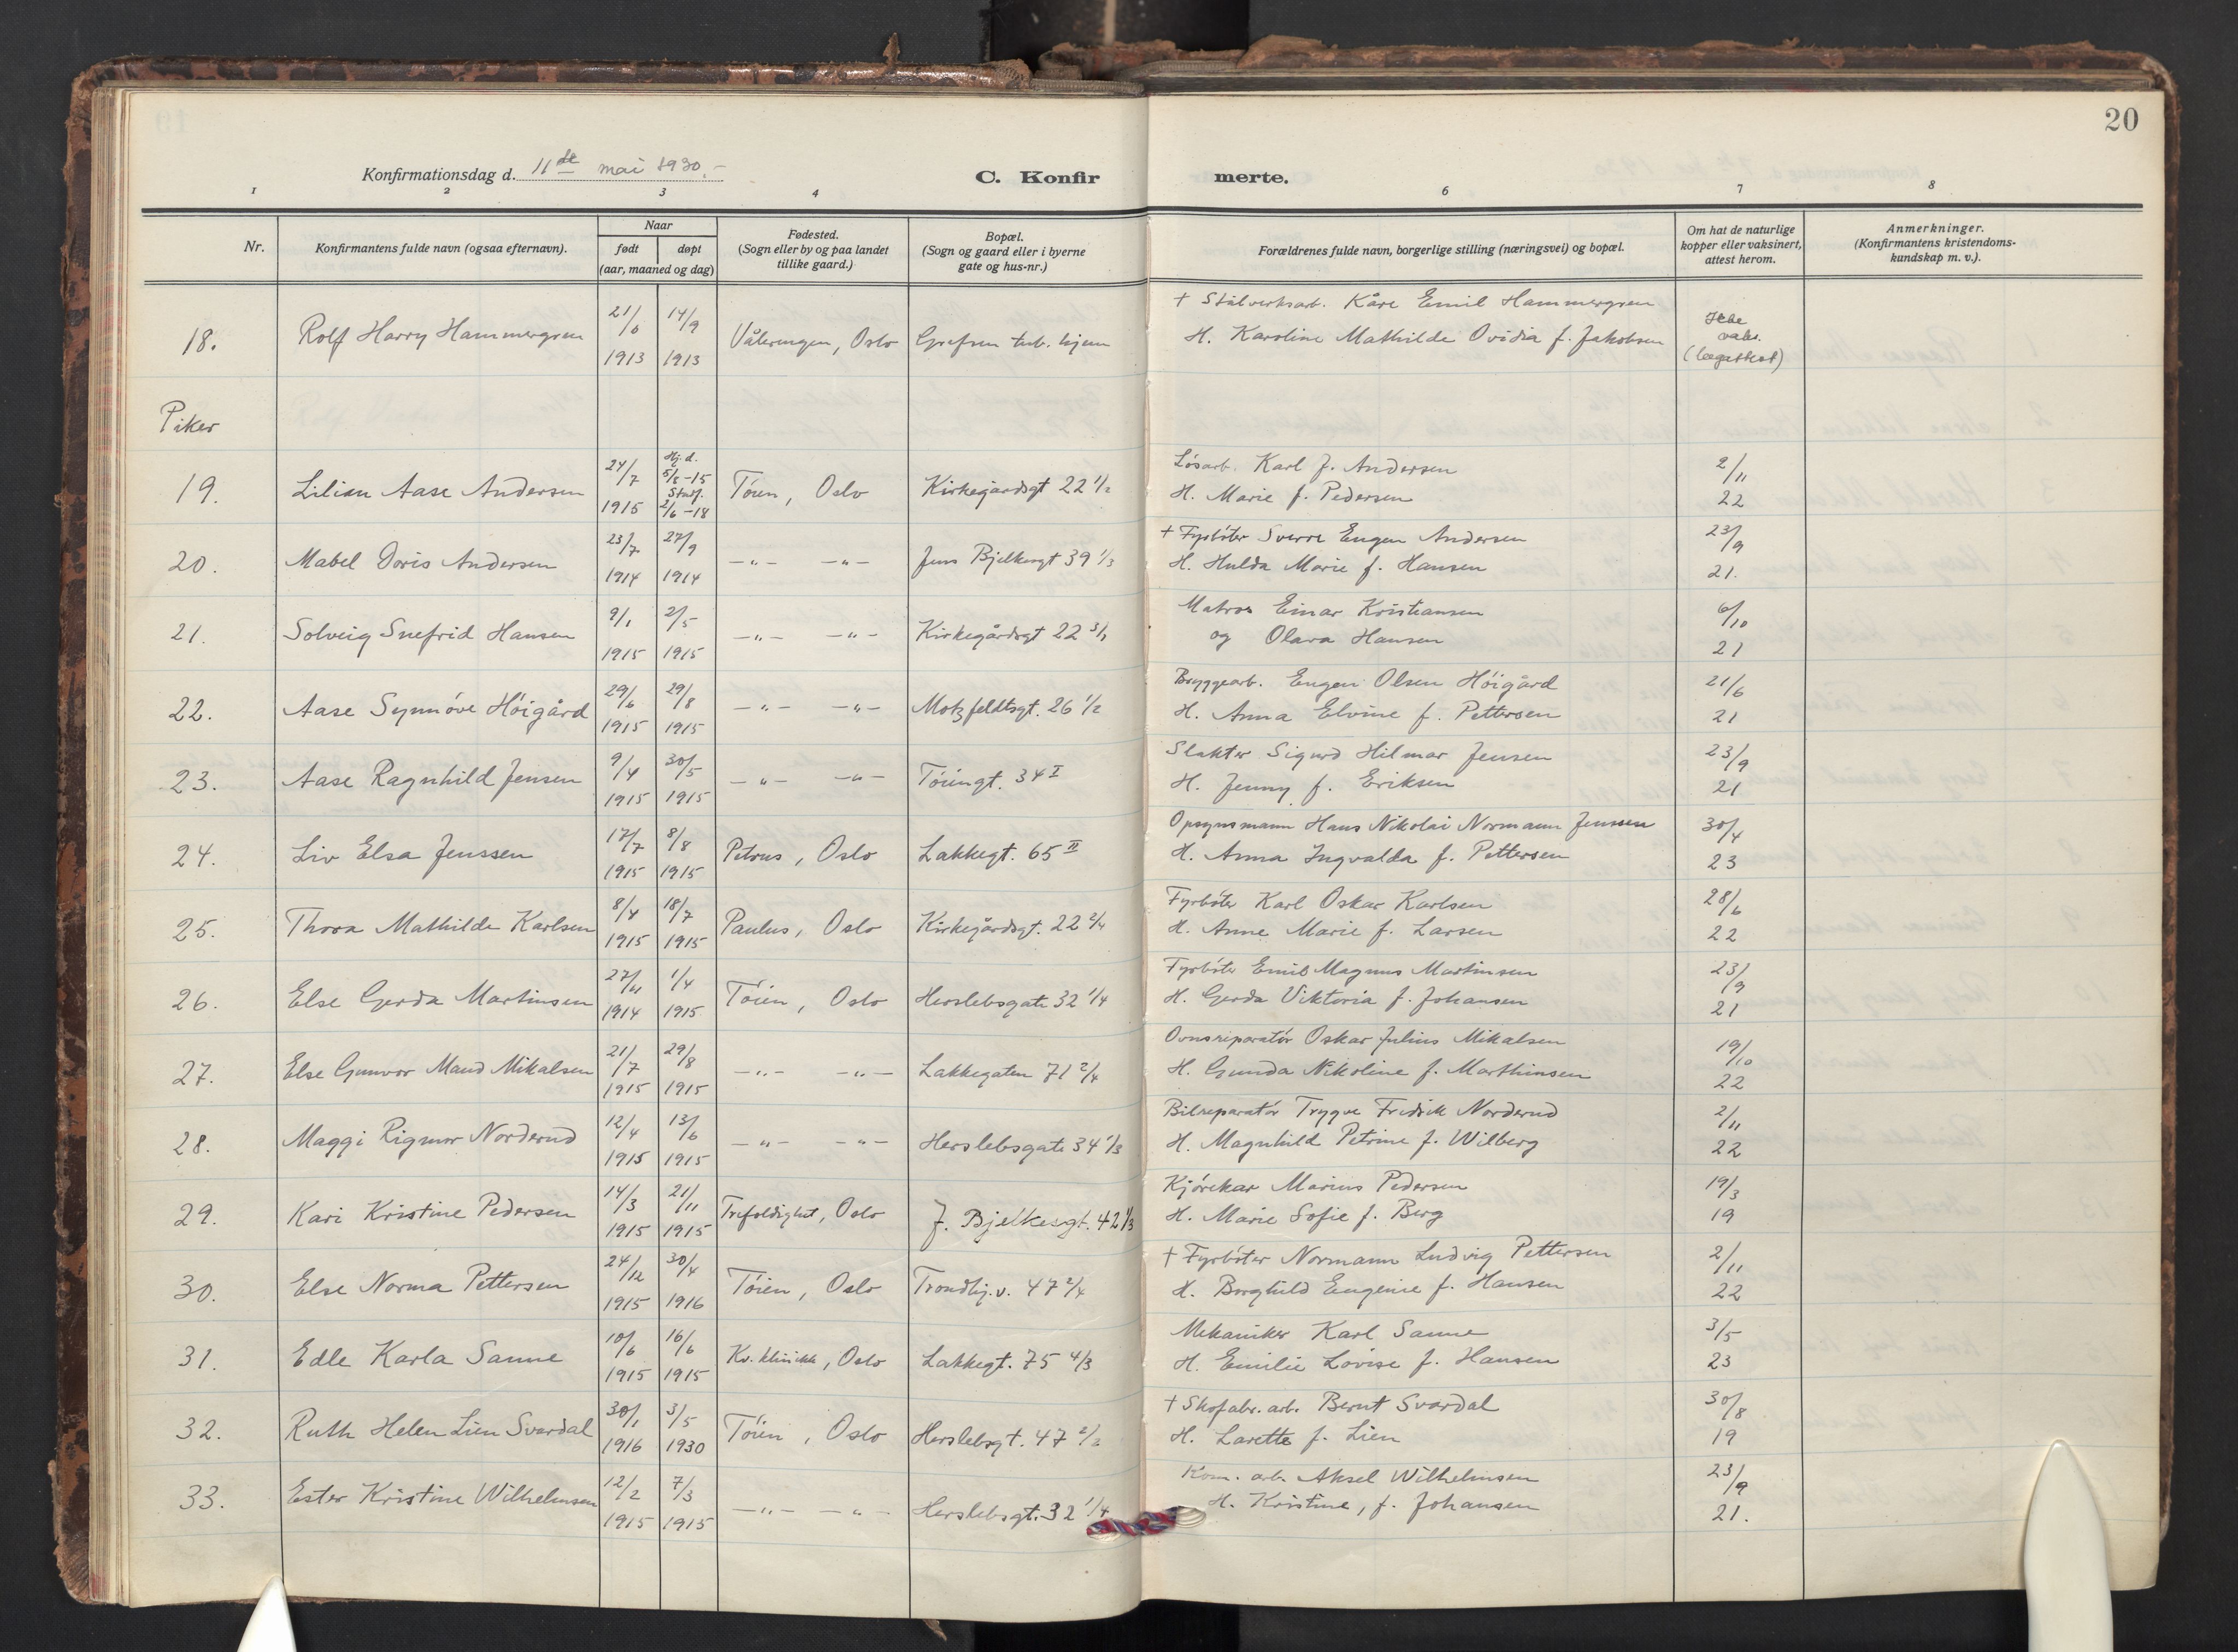 20
Konfirmationsdag d. 11de mai 1930.-
C. Konfirmerte.
1 2 3 4 6 7 8
Nr.
Konfirmantens fulde navn (ogsaa efternavn).
Naar
født
døpt
(aar, maaned og dag)
Fødested.
(Sogn eller by og paa landet
tillike gaard.)
Bopæl.
(Sogn og gaard eller i byerne
gate og hus-nr.)
Forældrenes fulde navn, borgerlige stilling (næringsvei) og bopæl.
Om hat de naturlige
kopper eller vaksinert,
attest herom.
Anmerkninger.
(Konfirmantens kristendoms-
kundskap m. v.).
18. Rolf Harry Hammergren 21/6 1913 14/9 1913 Vålerengen, Oslo Grefsen tub. hjem
† Stålverksarb. Kåre Emil Hammergren
H. Karoline Mathilde Ovidia f. Jakobsen
Ikke
vaks.
(lægattest)
Piker
19. Lilian Aase Andersen 24/7 1915 Hj.d. 5/8-15 Stadf. 2/6-18 Töien, Oslo Kirkegårdsgt 22 1/2
Løsarb. Karl J. Andersen
H. Marie f. Pedersen
2/11 22
20. Mabel Doris Andersen 23/7 1914 27/9 1914 -"- -"- Jens Bjelkesgt 39 1/3
† Fyrbøter Sverre Eugen Andersen
H. Hulda Marie f. Hansen
23/9 21.
21. Solveig Snefrid Hansen 9/1 1915 2/5 1915 -"- -"- Kirkegårdsgt 22 3/1
Matros Einar Kristiansen
og Olava Hansen
6/10 21
22. Aase Synnöve Höigård 29/6 1915 29/8 1915 -"- -"- Motzfeldtsgt. 26 1/2
Bryggearb. Eugen Olsen Höigård
H. Anna Elvine f. Pettersen
21/6 21
23. Aase Ragnhild Jensen 9/4 1915 30/5 1915 -"- -"- Töiengt. 34 I
Slakter Sigurd Hilmar Jensen
H. Jenny f. Eriksen
23/9 21
24. Liv Elsa Jenssen 17/7 1915 8/8 1915 Petrus, Oslo Lakkegt. 65 II
Opsynsmann Hans Nikolai Normann Jenssen
H. Anna Ingvalda f. Pettersen
30/4 23
25. Thora Mathilde Karlsen 8/4 1915 18/7 1915 Paulus, Oslo Kirkegårdsgt. 22 2/4
Fyrböter Karl Oskar Karlsen
H. Anne Marie f. Larsen
28/6 22
26. Else Gerda Martinsen 27/11 1914 1/4 1915 Töien, Oslo Herslebsgate 32 1/4
Fyrböter Emil Magnus Martinsen
H. Gerda Viktoria f. Johansen
23/9 21
27. Else Gunvor Maud Mikalsen 21/7 1915 29/8 1915 -"- -"- Lakkegaten 71 2/4
Ovnsreparatör Oskar Julius Mikalsen
H. Gunda Nikoline f. Marthinsen
19/10 22
28. Maggi Rigmor Norderud 12/4 1915 13/6 1915 -"- -"- Herslebsgate 34 1/3
Bilreparatör Trygve Fredrik Norderud
H. Magnhild Petrine f. Wilberg
2/11 22
29. Kari Kristine Pedersen 14/3 1915 21/11 1915 Trefoldighet, Oslo J. Bjelkesgt. 42 1/3
Kjörekar Marius Pedersen
H. Marie Sofie f. Berg
19/3 19
30. Else Norma Pettersen 24/12 1915 30/4 1916 Töien, Oslo Trondhj.v. 47 2/4
† Fyrböter Normann Ludvig Pettersen
H. Borghild Eugenie f. Hansen
2/11 22
31. Edle Karla Sanne 10/6 1915 16/6 1915 Kv. klinikk, Oslo Lakkegt. 75 4/3
Mekaniker Karl Sanne
H. Emilie Lovise f. Hansen
3/5 23
32. Ruth Helen Lien Svardal 30/1 1916 3/5 1930 Töien, Oslo Herslebsgt. 47 2/2
† Skofabr. arb. Bernt Svardal
H. Larette f. Lien
30/8 19
33. Ester Kristine Wilhelmsen 12/2 1915 7/3 1915 -"- -"- Herslebsgt. 32 1/4
Kom. arb. Aksel Wilhelmsen
H. Kristine, f. Johansen
23/9 21.